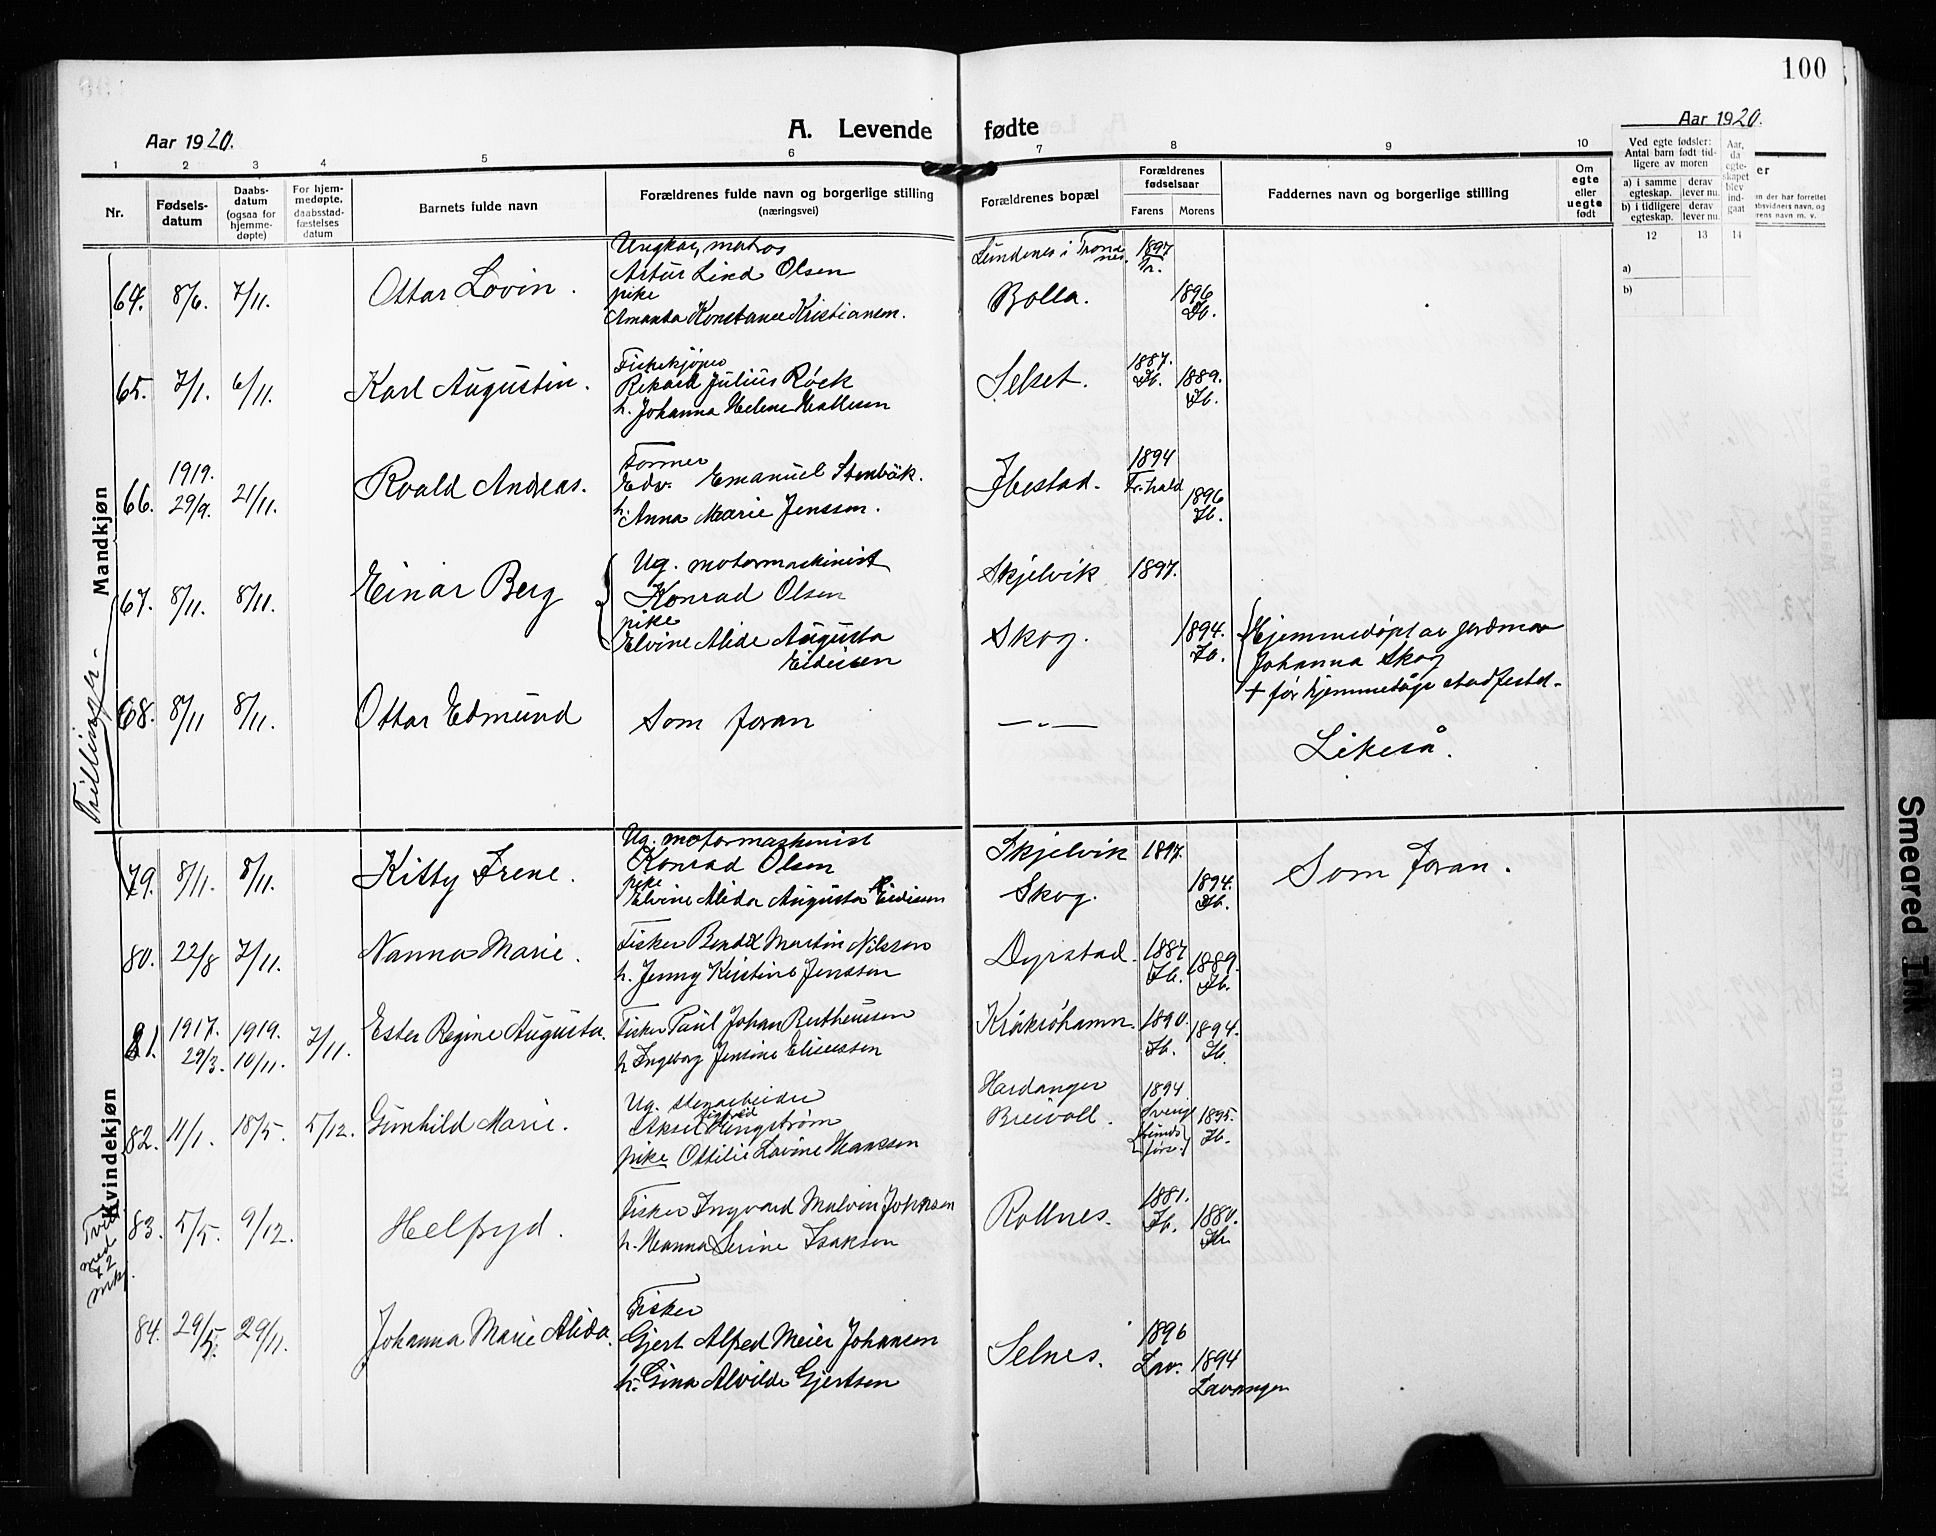 100
Aar 1920.
A. Levende fødte
Aar 1920.
1 2 3 4 5 6 7 8 9 10
Nr.
Fødsels-
datum
Daabs-
datum
(ogsaa for
hjemme-
døpte)
For hjem-
medøpte.
daabsstad-
fæstelses
datum
Barnets fulde navn
Forældrenes fulde navn og borgerlige stilling
(næringsvei)
Forældrenes bopæl
Forældrenes
fødselsaar
Farens Morens
Faddernes navn og borgerlige stilling
Om
egte
eller
uegte
født
Ved egte fødsler:
Antal barn født tid-
ligere av moren
a) i samme
egteskap.
derav
lever nu.
b) i tidligere
egteskap.
derav
lever nu.
Aar,
da
egte-
skapet
blev
ind-
gaat
12 13 14
a)
b)
Mandkjøn
64. 8/6. 7/11. Ottar Lovin.
Ungkar, matros
Artur Lind Olsen
pike
Amanda Konstance Kristiansen.
Lundenes i Trond
nes.
1897
Tr.
Bolla.
1896
Ib.
65. 7/1. 6/11. Karl Augustin.
Fiskekjøper
Rikard Julius Røek
h. Johanna Helene Mathisen
Selset.
1887.
Ib.
1889.
Ib.
66. 1919.
29/9. 21/11. Roald Andreas.
Former
Edv. Emanuel Stenbäk.
h. Anna Marie Jenssen.
Ibestad.
1894
Fr.hald
1896
Ib.
67. 8/11. 8/11. Einar Berg
Ug. motormaskinist
Konrad Olsen
pike
Elvine Alide Augusta
Eidissen
Skjelvik 1897.
Skog. 1894.
Ib.
Hjemmedøpt av jordmor
Johanna Skog
+ før hjemmedåps stadfestel-
68. 8/11 8/11. Ottar Edmund
Som foran
— " —
Likeså.
Trillinger.
Kvindekjøn
79. 8/11. 8/11. Kitty Irene.
Ug. motormaskinist
Konrad Olsen
pike
Elvine Alida Augusta Eidissen
Skjelvik 1897.
Skog. 1894.
Ib.
Som foran.
80. 22/8 7/11. Nanna Marie.
Fisker Bendix Martin Nilssen
h. Jenny Kristine Jenssen
Dyrstad.
1887
Ib.
1889.
Ib.
81. 1917.
29/3. 1919.
10/11. 7/11. Ester Regine Augusta.
Fisker Paul Johan Bertheussen
h. Ingeborg Jensine Elieussen
Kråkrøhamn.
1890.
Ib.
1894.
Ib.
82. 11/1. 18/5. 5/12. Gunhild Marie.
Ug. stenarbeider
Aksel Sigfrid Engstrøm
pike Ottilie Lovine Hanssen
Hardanger
Breivoll.
1894
Sverig
1895.
Ib.
83. 5/5. 9/12. Helfryd.
Fisker Ingvard Malvin Johnsen
h. Hanna Serine Isaksen
Rollnes.
1881.
Ib.
1880.
Ib.
Tvill
med
84. 29/5. 29/11. Johanna Marie Alida.
Fisker
Gjert Alfred Meier Johansen
h. Gina Alvilde Gjertsen
Selnes.
1896
Lav.
1894
Lavangen
Smeared Ink